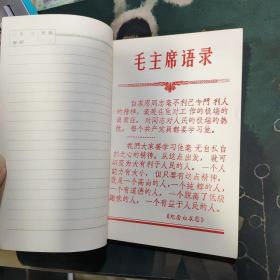 毛主席语录
白求恩同志毫不利己专门利人
的精神，表现在他对工作的极端的
负责任，对同志对人民的极端的热
忱。每个共产党员都要学习他。
我们大家要学习他毫无自私自
利之心的精神。从这点出发，就可
以变为大有利于人民的人。一个人
能力有大小，但只要有这点精神，
就是一个高尚的人，一个纯粹的人，
一个有道德的人，一个脱离了低级
趣味的人，一个有益于人民的人。
《纪念白求恩》